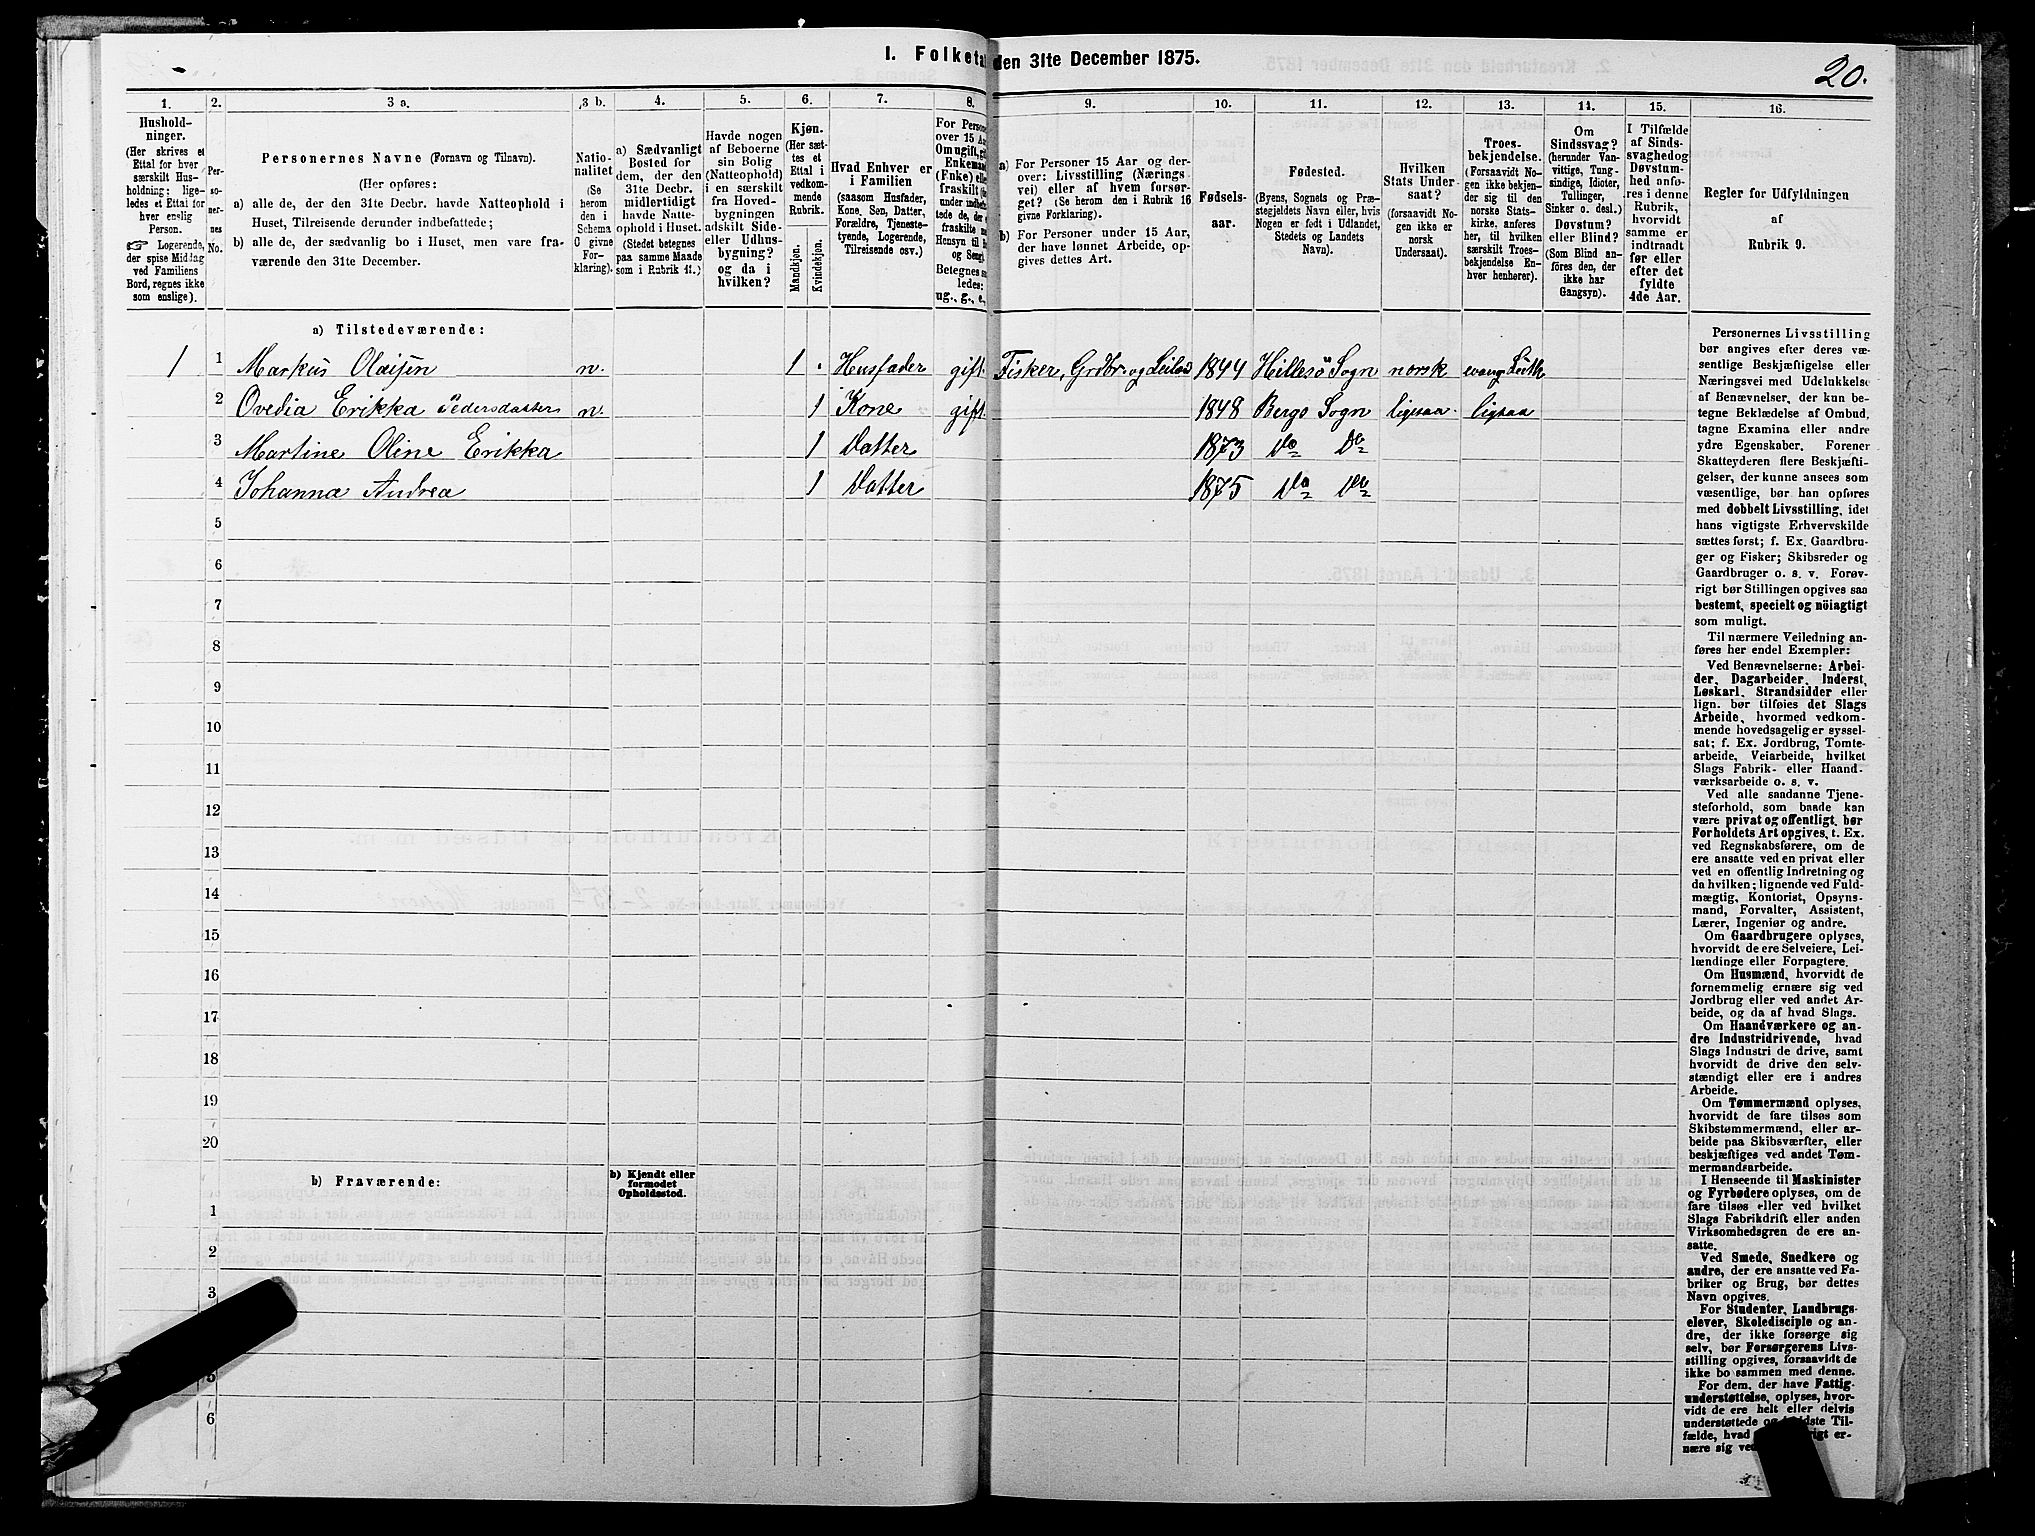 I. Folketal den 31te December 1875.
20.
1. 2. 3 a. 3 b. 4. 5. 6. 7. 8. 9. 10. 11. 12. 13. 14. 15. 16.
Hushold-
ninger.
(Her skrives et
Ettal for hver
særskilt Hus-
holdning; lige-
ledes et Ettal for
hver enslig
Person.
☞ Logerende,
der spise Middag
ved Familiens
Bord, regnes ikke
som enslige).
Per-
so-
ner-
nes
No.
Personernes Navne (Fornavn og Tilnavn).
(Her opføres:
a) alle de, der den 31te Decbr. havde Natteophold i
Huset, Tilreisende derunder indbefattede;
b) alle de, der sædvanlig bo i Huset, men vare fra-
værende den 31te December.
Natio-
nalitet
(Se
herom
den i
Schema
O givne
For-
klaring).
a) Sædvanligt
Bosted for
dem, der den
31te Decbr.
midlertidigt
havde Natte-
ophold i Huset.
(Stedet betegnes
paa samme Maade
som i Rubrik 11.)
Havde nogen
af Beboerne
sin Bolig
(Natteophold)
i en særskilt
fra Hoved-
bygningen
adskilt Side-
eller Udhus-
bygning?
og da i
hvilken?
Kjøn.
(Her sæt-
tes et
Ettal i
vedkom-
mende
Rubrik.
Mandkjøn.
Kvindekjøn.
Hvad Enhver er
i Familien
(saasom Husfader,
Kone, Søn, Datter,
Forældre, Tjeneste-
tyende, Logerende,
Tilreisende osv.)
For Persone
over 15 Aa
Om ugift, g
Enkemand
(Fnke) elle
fraskilt (h
under indb
tede de, der
fraskilte m
Hensyn til B
og Seng)
Betegnes sa
ledes:
ug., g., e.,
a) For Personer 15 Aar og der-
over: Livsstilling (Nærings-
vei) eller af hvem forsør-
get? (Se herom den i Rubrik 16
givne Forklaring).
b) For Personer under 15 Aar,
der have lønnet Arbeide, op-
gives dettes Art.
Fødsels-
aar.
Fødested.
(Byens, Sognets og Præ-
stegjeldets Navn eller, hvis
Nogen er født i Udlandet,
Stedets og Landets
Navn).
Hvilken
Stats Under-
saat?
(forsaavidt No-
gen ikke er
norsk
Undersaat).
Troes-
bekjendelse.
(Forsaavidt No-
gen ikke bekjen-
der sig til den
norske Stats-
kirke, anføres
her, til hvilken
særskilt Troes-
bekjendelse En-
hver henhører).
Om
Sindssvag?
(herunder Van-
vittige, Tung-
sindige, Idioter,
Tullinger,
Sinker o. desl.)
Døvstum?
eller Blind?
(Som Blind an-
føres den, der
ikke har
Gangsyn).
I Tilfælde
af Sinds-
svaghed og
Døvstum-
hed anfø-
res i denne
Rubrik,
hvorvidt
samme er
indtraadt
før eller
efter det
fyldte
4de Aar.
Regler for Udfyldningen
af
Rubrik 9.
a) Tilstedeværende:
1 1 Markus Olaisen n. 1 Husfader gift. Fisker, Grdbr. og Leilæd 1844 Hillesö Sogn norsk evang Luth
2 Ovedia Erikka Pedersdatter n. 1 Kone gift. 1848 Bergs Sogn ligesaa ligesaa
3 Martine Oline Erikka 1 Datter 1873 Do Do
4 Johanna Andrea 1 Datter 1875 Do Do
5
6
7
8
9
10
11
12
13
14
15
16
17
18
19
20
b) Fraværende:
b) Kjendt eller
formodet
Opholdssted.
1
2
3
5
6
Personernes Livsstilling
bør angives efter deres væ-
sentlige Beskjæftigelse eller
Næringsvei med Udelukkelse
af Benævnelser, der kun be-
tegne Beklædelse af Ombud,
tagne Examina eller andre
ydre Egenskaber. Forener
Skatteyderen flere Beskjæfti-
gelser, der kunne ansees som
væsentlige, bør han opføres
med dobbelt Livsstilling, idet
hans vigtigste Erhvervskilde
sættes først; f. Ex. Gaardbru-
ger og Fisker; Skibsreder og
Gaardbruger o. s. v. Forøv-
rigt bør Stillingen opgives saa
bestemt, specielt og nöiagtigt
som muligt.
Til nærmere Veiledning an-
føres her endel Exempler:
Ved Benævnelserne: Arbei-
der, Dagarbeider, Inderst,
Løskarl, Strandsidder eller
lign. bør tilføies det Slags
Arbeide, hvormed vedkom-
mende hovedsagelig er syssel-
sat; f. Ex. Jordbrug, Tomte-
arbeide, Veiarbeide, hvilket
Slags Fabrik- eller Haand-
værksarbeide o. s. v.
Ved alle saadanne Tjene-
steforhold, som baade kan
være privat og offentligt, bør
Forholdets Art opgives, t. Ex.
ved Regnskabsførere, om de
ere ansatte ved en privat eller
ved en offentlig Indretning og
da hvilken; lignende ved Fuld-
mægtig, Kontorist, Opsyns-
mand, Forvalter, Assistent,
Lærer, Ingeniør og andre.
Om Gaardbrugere oplyses,
hvorvidt de ere Selveiere, Lei-
lændinge eller Forpagtere.
Om Husmænd, hvorvidt de
fornemmelig ernære sig ved
Jordbrug eller ved andet Ar-
beide, og da af hvad Slags.
Om Haandværkere og an-
dre Industridrivende, hvad
Slags Industri de drive, samt
hvorvidt de drive den selv-
stændigt eller ere i andres
Arbeide.
Om Tømmermænd oplyses,
hvorvidt de fare tilsøs som
Skibstømmermænd, eller ar-
beide paa Skibsværfter, eller
beskjæftiges ved andet Tøm-
mermandsarbeide.
I Henseende til Maskinister
og Fyrbødere oplyses, om de
fare tilsøs eller ved hvilket
Slags Fabrikdrift eller anden
Virksomhedsgren de ere an-
satte.
Ved Smede, Snedkere og
andre, der ere ansatte ved Fa-
briker og Brug, bør dettes
Navn opgives.
For Studenter, Landbrugs-
elever, Skoledisciple og an-
dre, der ikke forsørge sig
selv, bør Forsørgerens Livs-
stilling opgives, forsaavidt de
ikke bo sammen med denne.
For dem, der have Fattig-
understøttelse, oplyses, hvor-
vidt de ere helt eller delvis
understøttede og i sidste Til-
fælde, hvad
nære sig ved